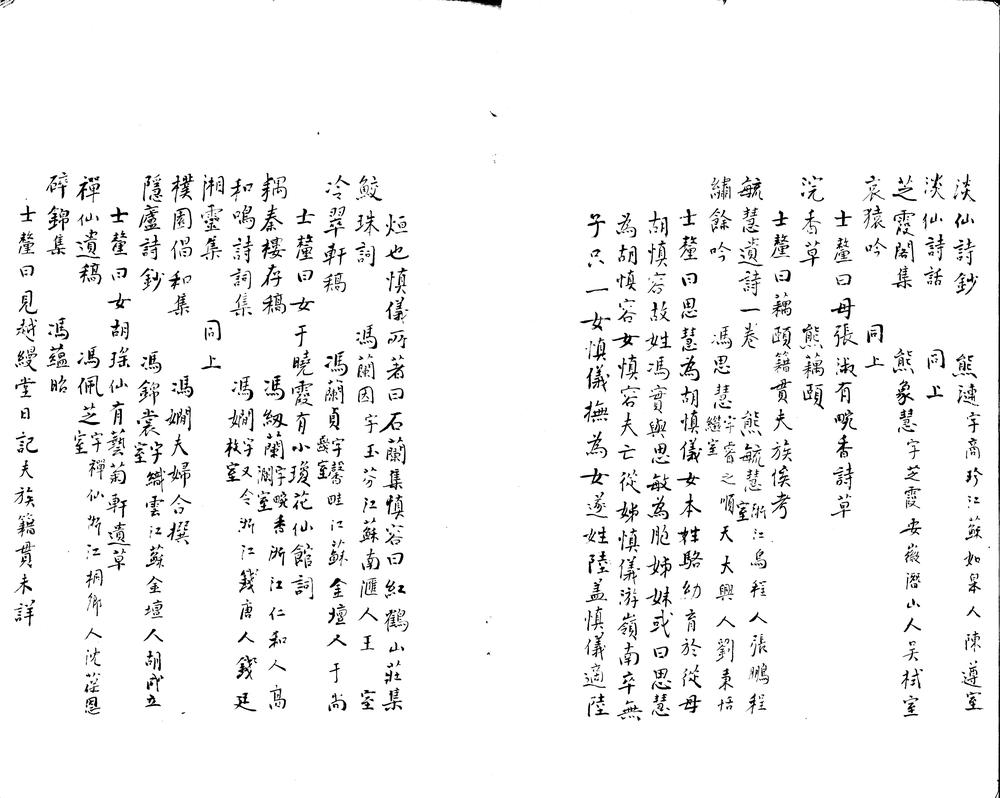 淡仙詩鈔 熊漣字商珍江蘇如皋人陳遵室
淡仙詩話 同上
芝霞閣集 熊象慧字芝霞安徽潛山人吴栻室
哀猿吟 同上
士釐曰母張淑有畹香詩草
浣香草 熊藕頤
士釐曰藕頤籍貫夫族俟考
毓慧遺詩一卷 熊毓慧浙江烏程人張鵬程室
繡餘吟 馮思慧字睿之順天大興人劉秉恬繼室
士釐曰思慧為胡慎儀女本姓駱幼育於從母
胡慎容故姓馮實與思敏為胞姊妹或曰思慧
為胡慎容女慎容夫亡從姊慎儀游嶺南卒無
子只一女慎儀撫為女遂姓陸盖慎儀適陸
烜也慎儀所著曰石蘭集慎容曰紅鶴山莊集
鮫珠詞 馮蘭因字玉芬江蘇南滙人王 室
冷翠軒稿 馮蘭貞字馨畦江蘇金壇人于尚齡室
士釐曰女于曉霞有小瓊花仙館詞
耦秦樓存稿 馮紉蘭字畹香浙江仁和人高瀾室
和鳴詩詞集 馮嫺字又令浙江錢唐人錢廷枚室
湘靈集 同上
樸園倡和集 馮嫺夫婦合撰
隱廬詩鈔 馮錦裳字織雲江蘇金壇人胡成立室
士釐曰女胡瑤仙有藝菊軒遺草
禪仙遺稿 馮佩芝字禪仙浙江桐鄉人沈葆恩室
碎錦集 馮蘊昭
士釐曰見越縵堂日記夫族籍貫未詳